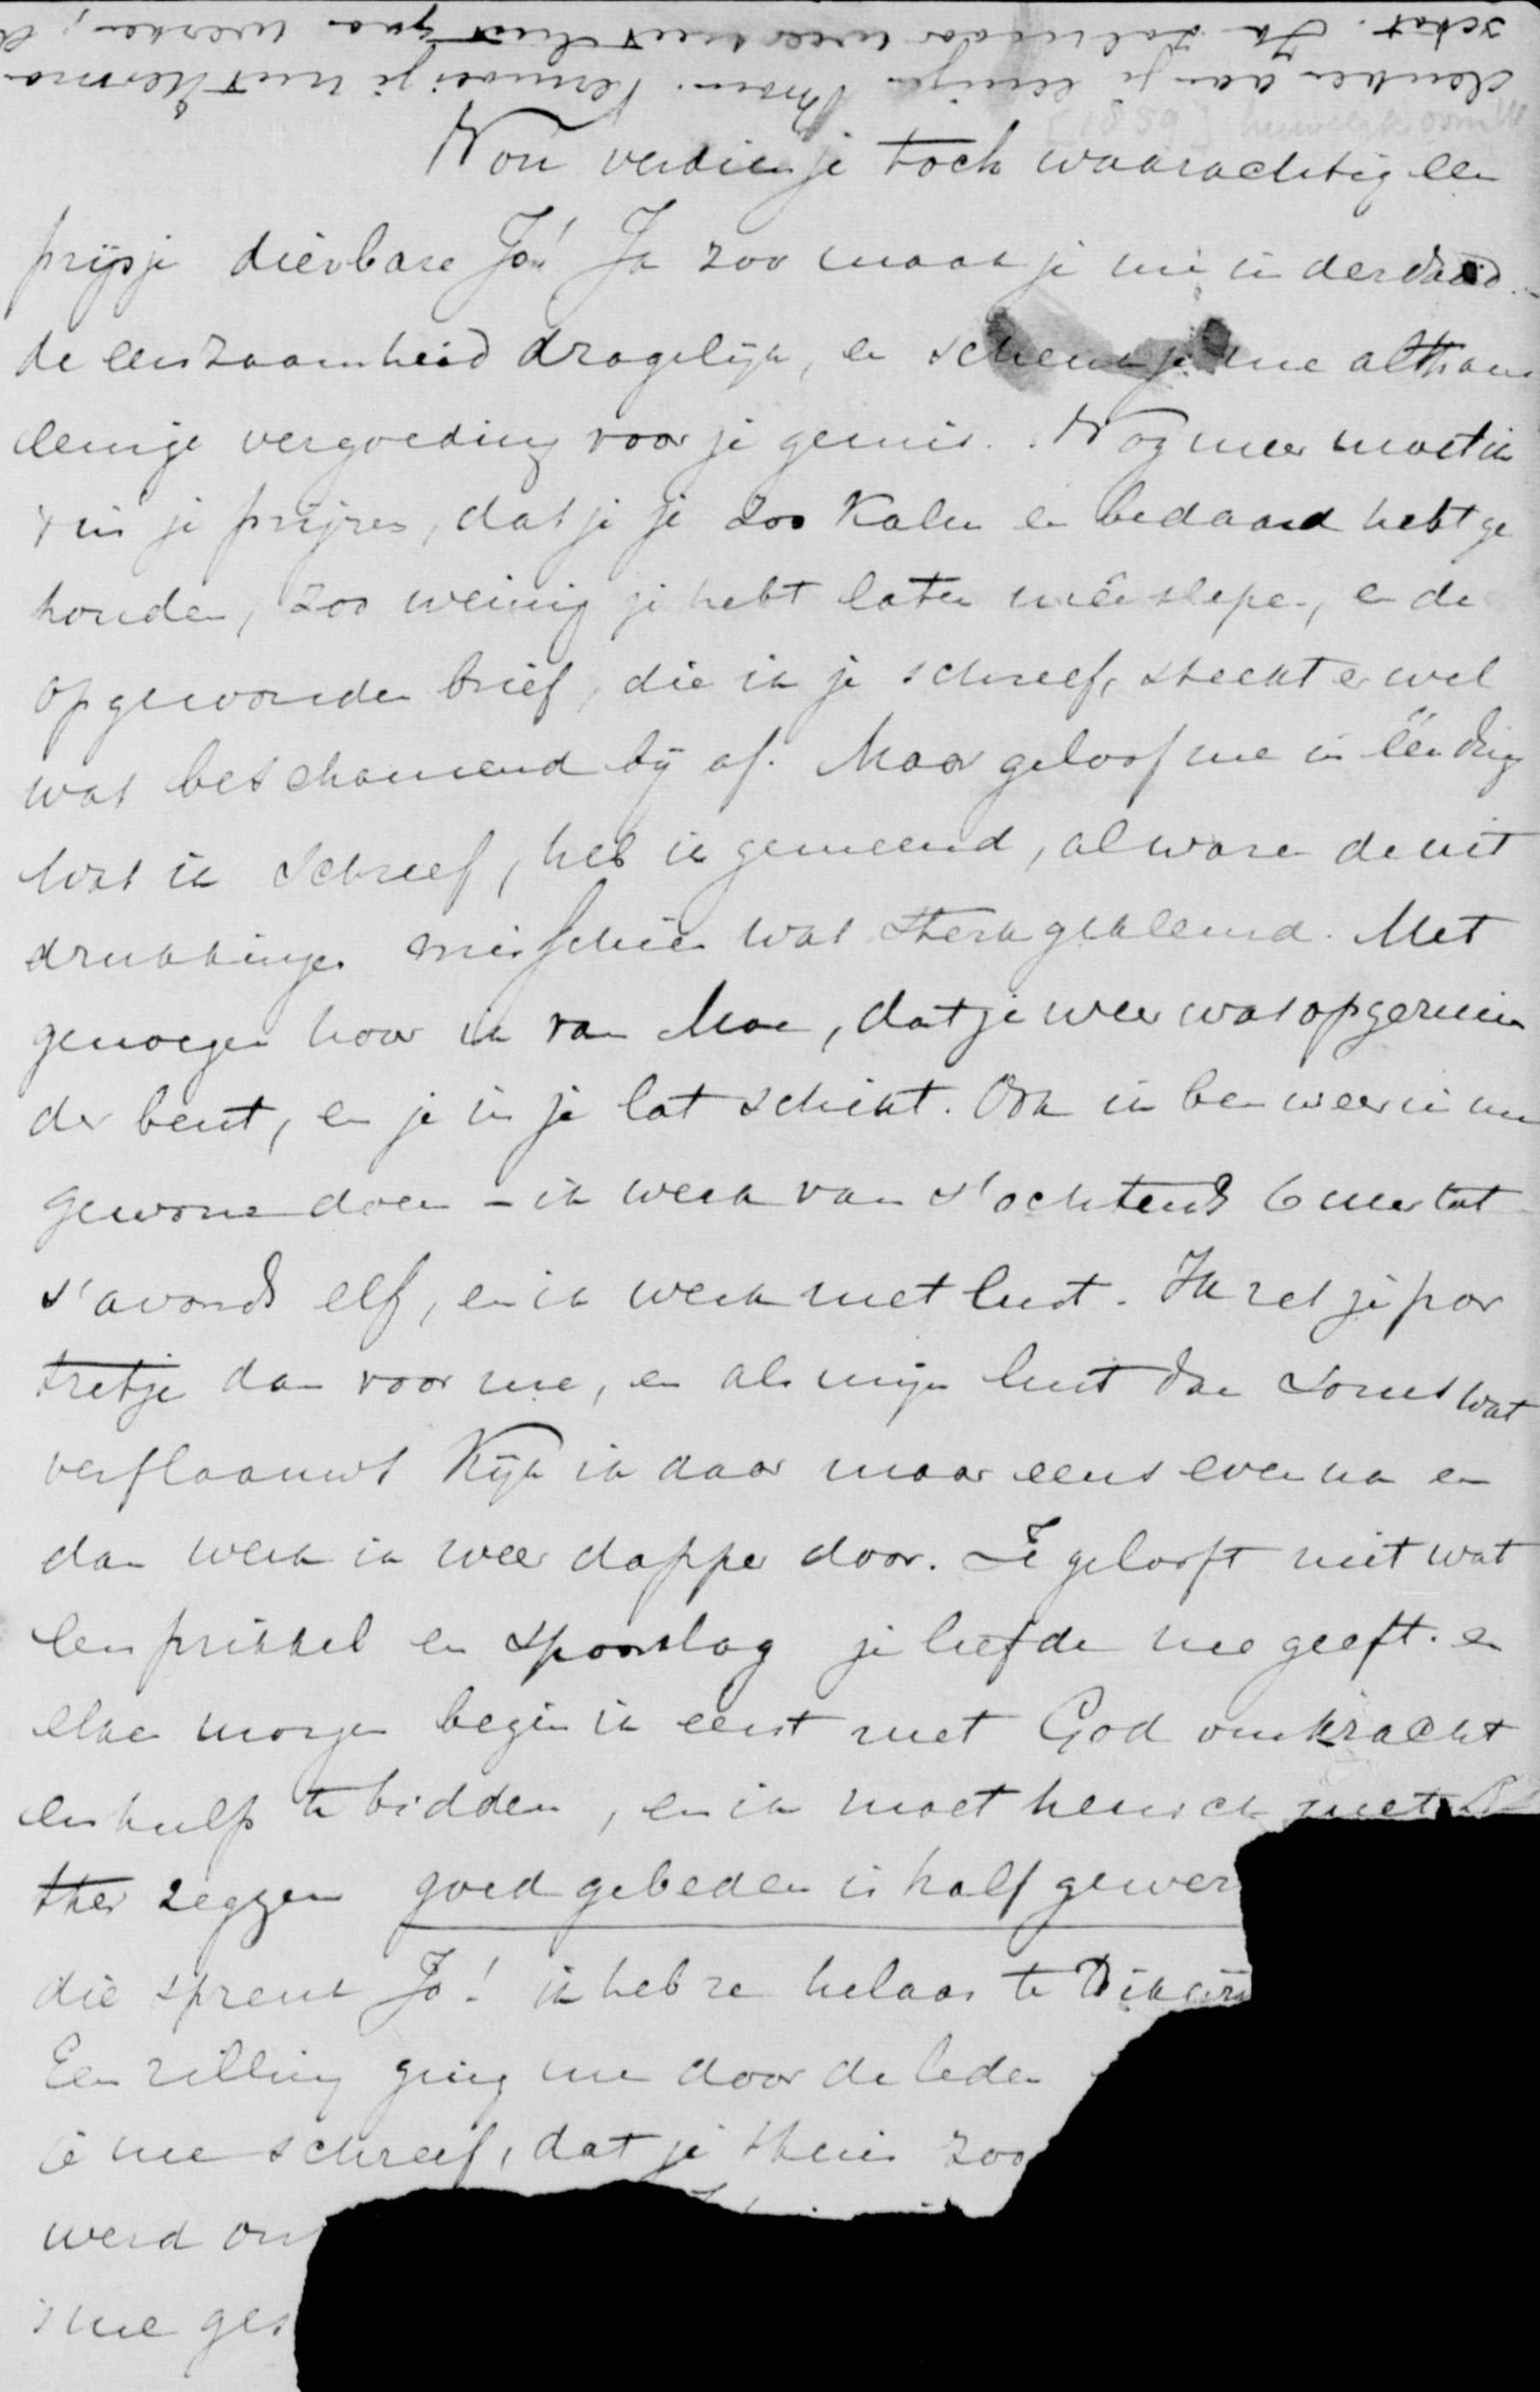 denken aan je eenige Bram. Vermoei je niet
schat. Ik zal maar weer met lust gaan werken,
[1859]
Nou verdien je toch waarachtig een
prijsje dierbare Jo! Ja zoo maak je me inderdaad
de eenzaamheid dragelijk, en schenk je me althans
eenige vergoeding voor je gemis. Nog meer moet ik
in je prijzen, dat je je zoo kalm en bedaard hebt ge
houden, zoo weinig je hebt laten meêslepen, en de
opgewonden brief, die ik je schreef, steekt er wel
wat beschamend bij af. Maar geloof me in één ding
wat ik schreef, heb ik gemeend, al waren de uit
drukkingen misschien wat sterk gekleurd. Met
genoegen hoor ik van Moe, dat je weer wat opgeruim
der bent, en je in je lot schikt. Ook ik ben weer in mn
gewone doen – ik werk van s'ochtends 6 uur tot
s'avonds elf, en ik werk met lust. Ik zet je por
tretje dan voor me, en als mijn lust dan soms wat
verflaauwt kijk ik daar maar eens even na en
dan werk ik weer dapper door. Je gelooft niet wat
een prikkel en spoorslag je liefde me geeft. en
elken morgen begin ik eerst met God om kracht
en hulp te bidden, en ik moet heusch met
ther zeggen goed gebeden is half gewer
die spreuk Jo! ik heb ze helaas te
Een rilling ging me door de leden
je me schreef, dat je thuis zoo
werd on
me ges